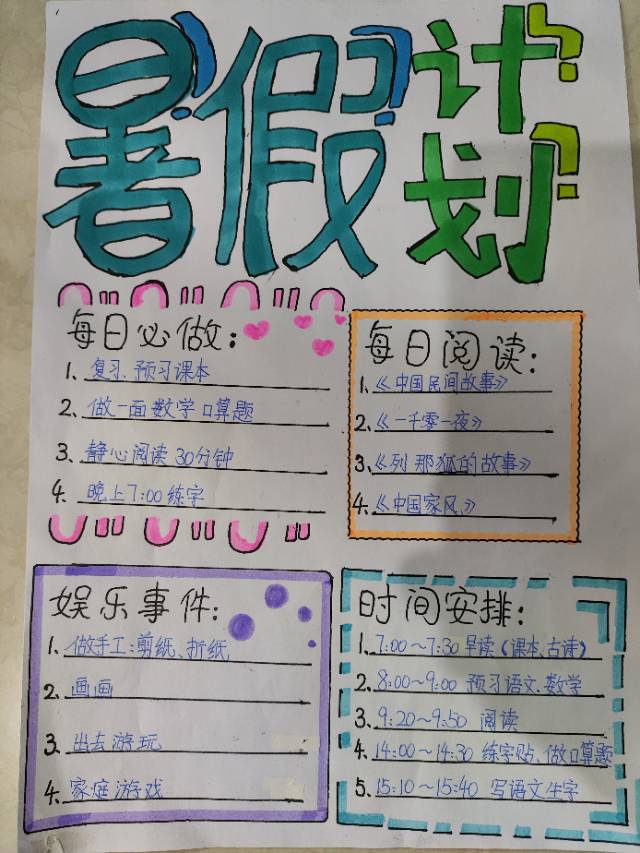 暑假计划
每日必做:
1、复习、预习课本
2、做一面数学口算题
3、静心阅读30分钟
4、晚上7:00练字
每日阅读:
1、《中国民间故事》
2、《一千零一夜》
3、《列那狐的故事》
4、《中国家风》
娱乐事件:
1、做手工:剪纸、折纸
2、画画
3、出去游玩
4、家庭游戏
时间安排:
1、7:00~7:30 早读(课本、古诗)
2、8:00~9:00 预习语文、数学
3、9:20~9:50 阅读
4、14:00~14:30 练字贴、做口算题
5、15:10~15:40 写语文生字